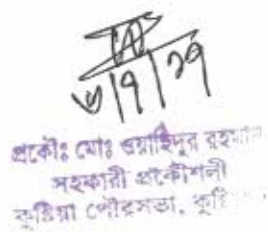 ৬/৭/২১
প্রকৌঃ মোঃ ওয়াহিদুর রহমান
সহকারী প্রকৌশলী
কুষ্টিয়া পৌরসভা, কুষ্টিয়া